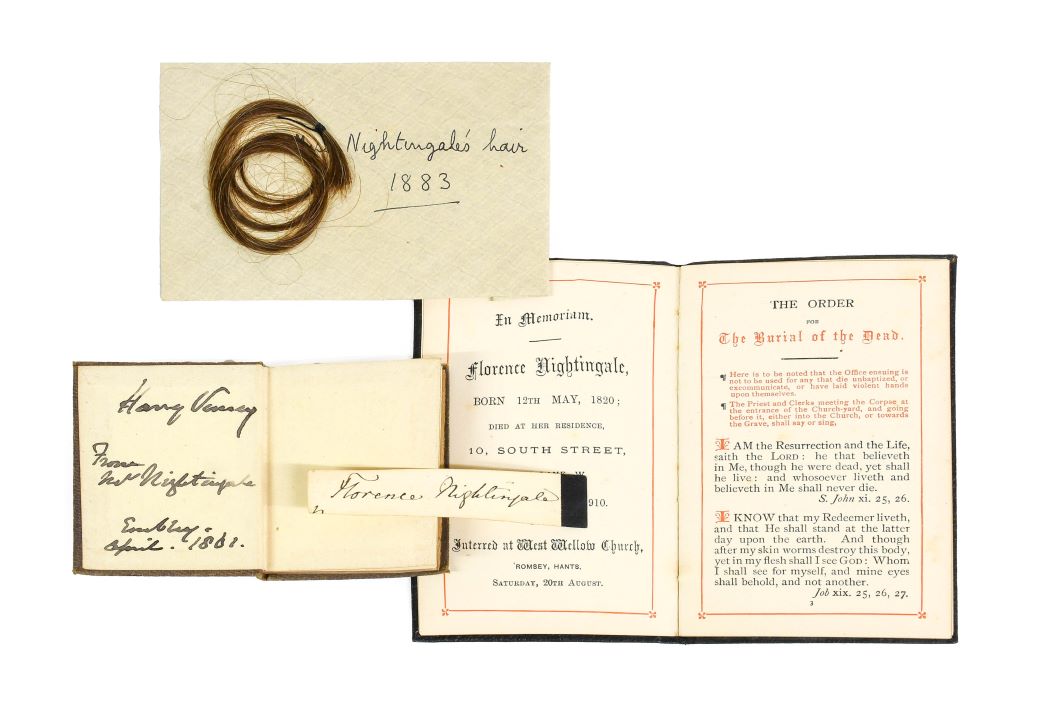 Nightingale's hair
1883
In Memoriam.
Florence Nightingale,
BORN 12TH MAY, 1820;
DIED AT HER RESIDENCE,
10, SOUTH STREET,
W
910.
Interred at West Wellow Church,
ROMSEY, HANTS,
SATURDAY, 20TH AUGUST.
THE ORDER
FOR
The Burial of the Dead.
¶ Here is to be noted that the Office ensuing is
not to be used for any that die unbaptized, or
excommunicate, or have laid violent hands
upon themselves.
¶ The Priest and Clerks meeting the Corpse at
the entrance of the Church-yard, and going
before it, either into the Church, or towards
the Grave, shall say or sing,
I AM the Resurrection and the Life,
saith the LORD: he that believeth
in Me, though he were dead, yet shall
he live: and whosoever liveth and
believeth in Me shall never die.
S. John xi. 25, 26.
I KNOW that my Redeemer liveth,
and that He shall stand at the latter
day upon the earth. And though
after my skin worms destroy this body,
yet in my flesh shall I see GOD: Whom
I shall see for myself, and mine eyes
shall behold, and not another.
Job xix. 25, 26, 27.
3
Harry Verney
From
Nightingale
Embley.
April. 1861.
Florence Nightingale